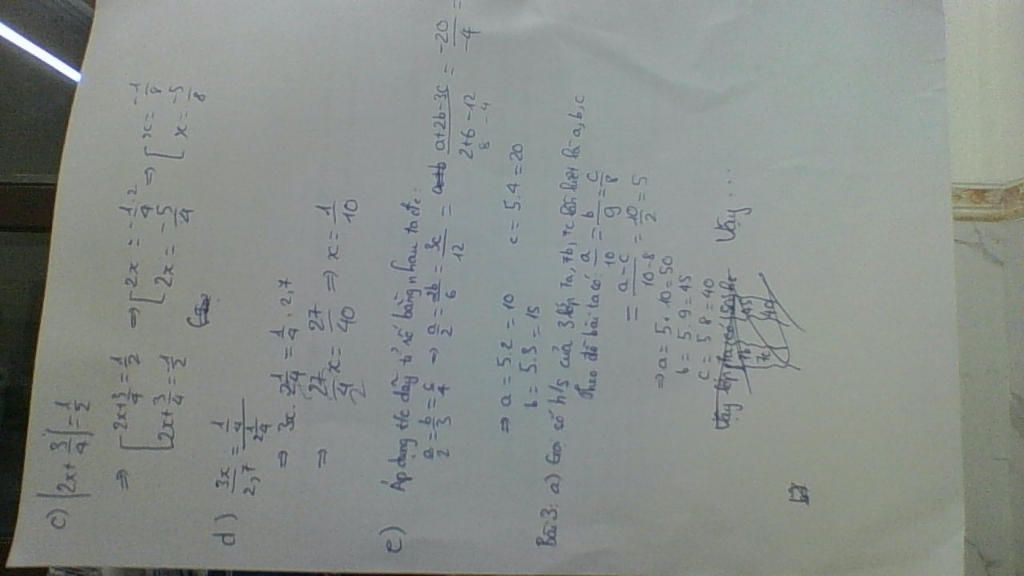 c) |2x + 3/4| = 1/2
⇒ [ 2x + 3/4 = 1/2 ⇒ [ 2x = -1/4 ⇒ [ x = -1/8
2x + 3/4 = 1/2 2x = -5/4 x = -5/8
d) 3x/2,7 =
⇒ 3x. = 1/4 . 2,7
⇒ x = 27/40 ⇒ x = 1/10
e) Áp dụng t/c dãy tỉ số bằng nhau ta đc:
a/2 = b/3 = c/4 ⇒ a/2 = 2b/6 = 3c/12 = a+2b-3c/2+6-12 = -20/-4 =
⇒ a = 5.2 = 10
b = 5.3 = 15 c = 5.4 = 20
Bài 3: a) Gọi số h/s của 3 lớp 7a, 7b, 7c lần lượt là a, b, c
Theo đề bài ta có: a/10 = b/9 = c/8
= a-c/10-8 = 10/2 = 5
⇒ a = 5.10 = 50
b = 5.9 = 45
c = 5.8 = 40
Vậy ...